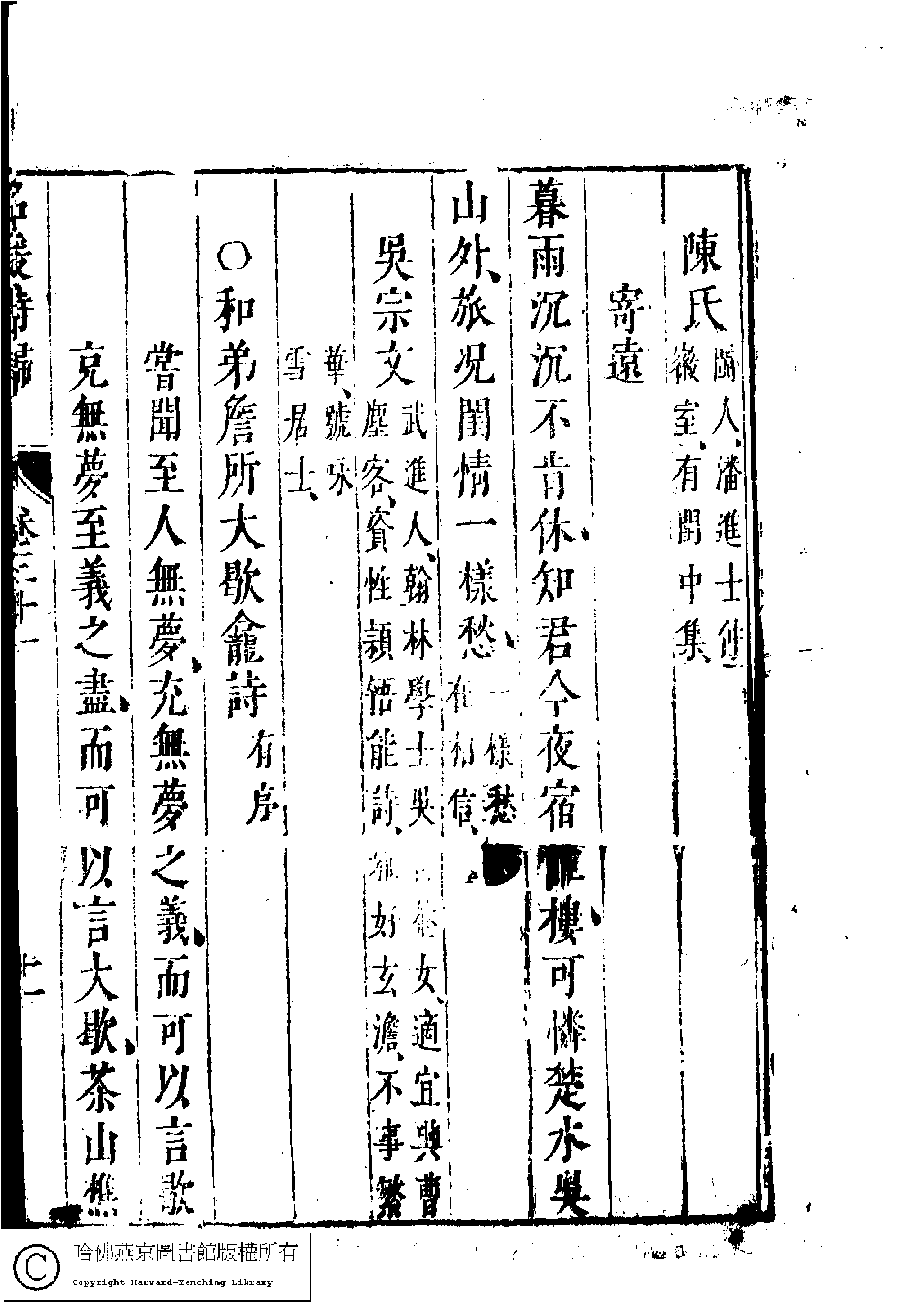 陳氏閩人、潘進士
徽室、有閨中集、
寄遠
暮雨沉沉不肯休、知君今夜宿樓、可憐楚水吳
山外、旅况閨情一樣愁、一樣愁
有相信、
吳宗文武進人、翰林學士吳女、適宜興曹
塵客、資性穎悟能詩、雅好玄澹、不事繁
華、號冰
雪居士、
○和弟詹所大歇龕詩有序
嘗聞至人無夢、充無夢之義、而可以言歇
充無夢至義之盡、而可以言大歇、茶山樵
名媛詩歸
卷三十一
十一
哈佛燕京圖書館版權所有
Copyright Harvard-Yenching Library